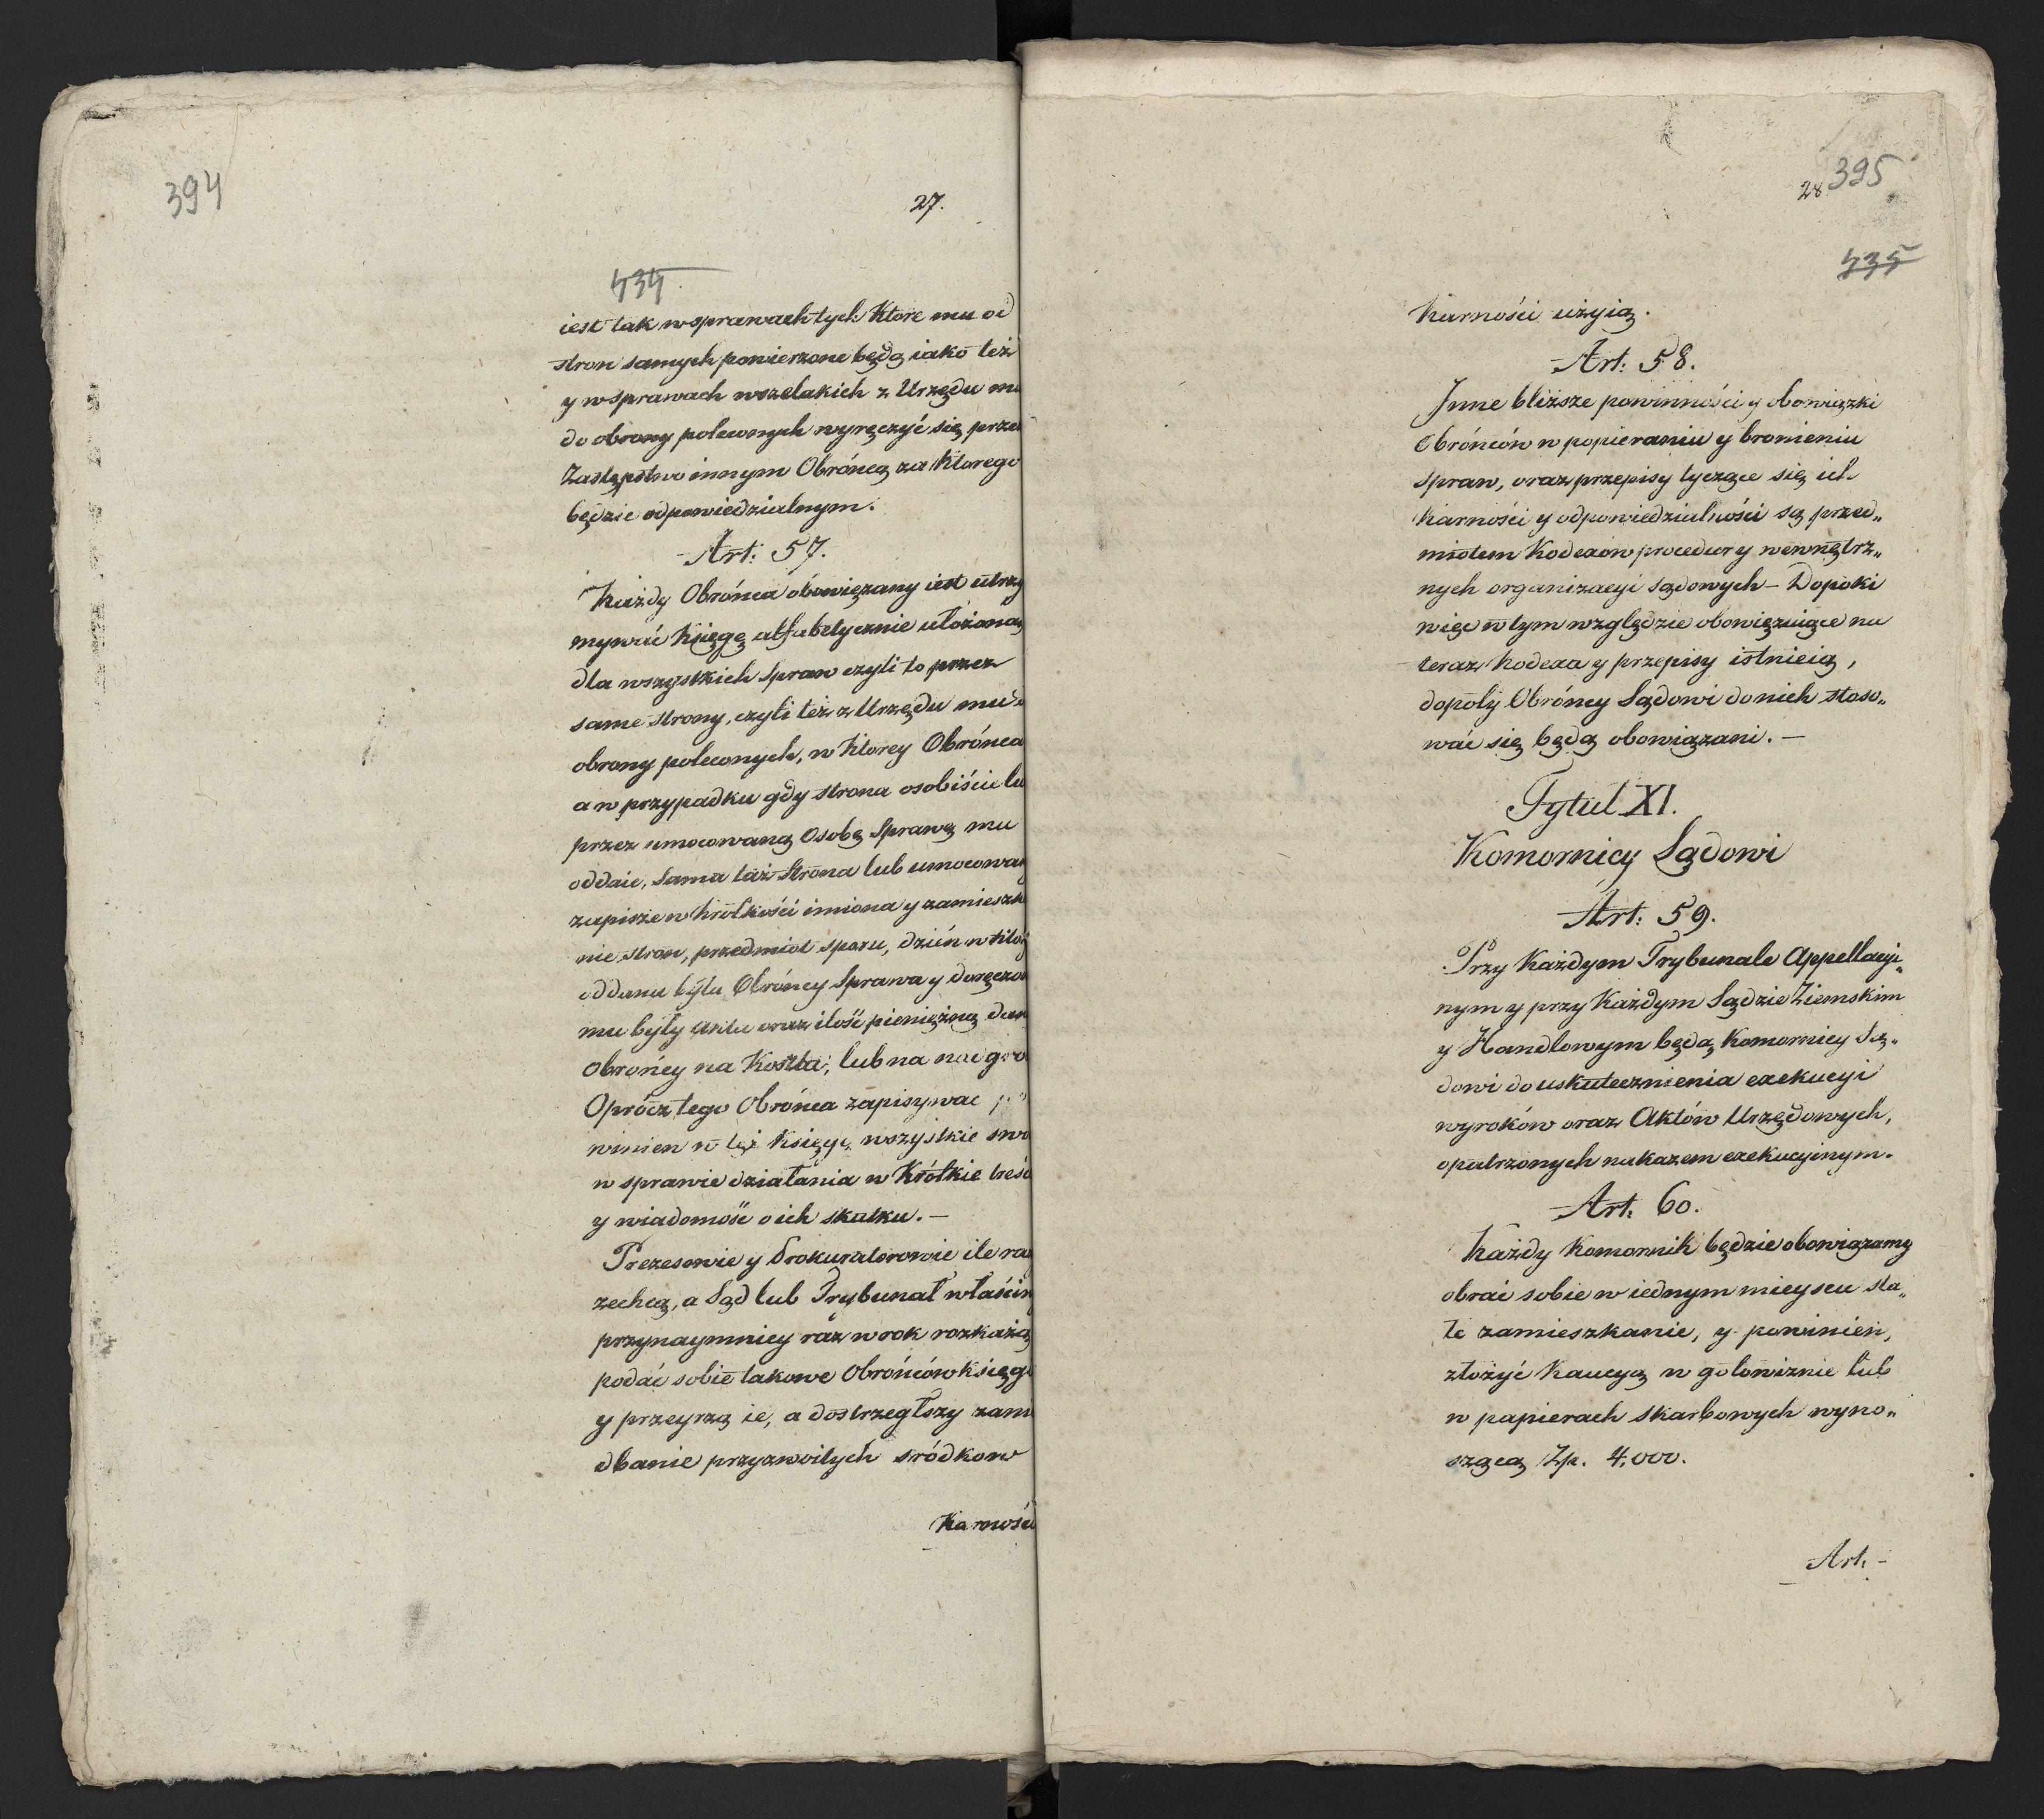 394
27.
434
iest tak w sprawach tych Ktore mu od
stron samych powierzone będą iako też
y w sprawach wszelakich z Urzędu mu
do obrony poleconych wyręczyć się prze
Zastępstwo innym Obrońcą za Ktorego
będzie odpowiedzialnym.
Art: 57.
Każdy Obrońca obowięzany iest utrzy
mywać Księgę alfabetycznie ułożoną
dla wszystkich Spraw czyli to przez
same strony, czyli też z Urzędu mu
obrony poleconych, w Ktorey Obrońca
a w przypadku gdy strona osobiście lu
przez umocowaną Osobę Sprawę mu
oddaie, Sama taż Strona lub umocowan
zapisze w krótkości imiona y zamieszk
nie stron, przedmiot sporu, dzień w któ
oddana była Obrońcy Sprawa y doręczon
mu były akta oraz ilość pieniężną dan
Obrońcy na Koszta, lub na nadgro
Oprócz tego Obrońca zapisywac po
winien w tęż Księgę wszystkie swo
w sprawie działania w Krótkie treśc
y wiadomość o ich skutku. —
Prezesowie y Prokuratorowie ile ra
zechcą, a Sąd lub Trybunał właściw
przynaymniey raz w rok rozkażą
podać sobie takowe Obrońców księg
y przeyrzą ie, a dostrzegłszy zani
dbanie przyzwoitych sródkow
Karnośc
28.
395
435
Karności użyią.
Art: 58.
Inne bliższe powinności y obowiązki
Obrońców w popieraniu y bronieniu
Spraw, oraz przepisy tyczące się ich
Karności y odpowiedzialności są przed„
miotem Kodexów procedury wewnętrz„
nych organizacyi sądowych – Dopoki
więc w tym względzie obowięzuiące na
teraz kodexa y przepisy istnieią,
dopoty Obrońcy Sądowi do nich stoso„
wać się będą obowiązani. —
Tytuł XI.
Komornicy Sądowi
Art: 59.
Przy Każdym Trybunale Appellacyi„
nym y przy Każdym Sądzie Ziemskim
y Handlowym będą Komornicy Są„
dowi do uskutecznienia exekucyi
wyroków oraz Aktów Urzędowych,
opatrzonych nakazem exekucyinym.
Art: 60.
Każdy Komornik będzie obowiązany
obrać sobie w iednym mieyscu sta„
łe zamieszkanie, y powinien,
złożyć Kaucyą w gotowiznie lub
w papierach Skarbowych wyno„
szącą Zp. 4,000.
Art. –